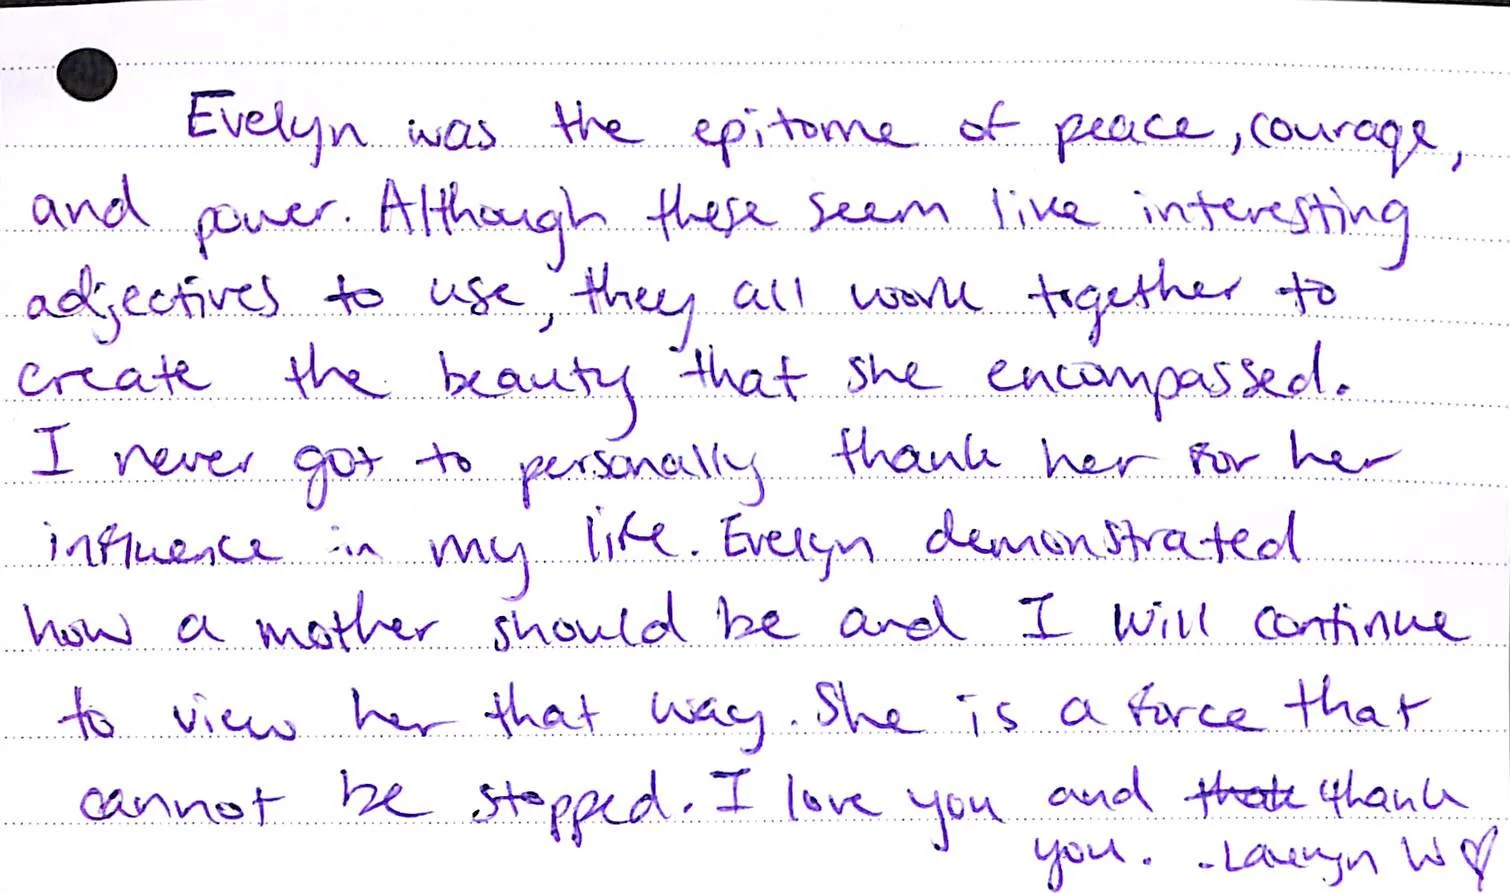 Evelyn was the epitome of peace, courage,
and power. Although these seem like interesting
adjectives to use, they all work together to
create the beauty that she encompassed.
I never got to personally thank her for her
influence in my life. Evelyn demonstrated
how a mother should be and I will continue
to view her that way. She is a force that
cannot be stopped. I love you and thank
you. - Lauryn W ♡